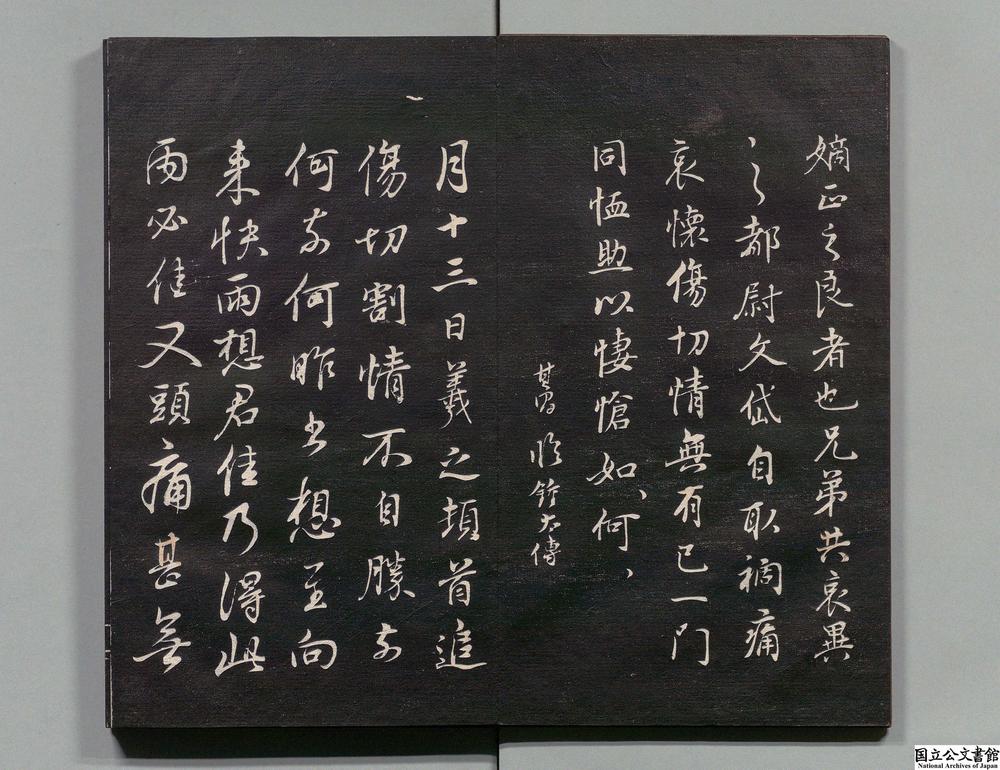 嫡正之良者也兄弟共哀異
〻之都尉文岱自取禍痛
哀懷傷切情無有已一門
同恤助以悽愴如〻何〻
其昌臨鍾太傅
月十三日羲之頓首追
傷切割情不自勝奈
何奈何昨書想至向
來快雨想君佳乃得此
雨必佳又頭痛甚無
国立公文書館
National Archives of Japan